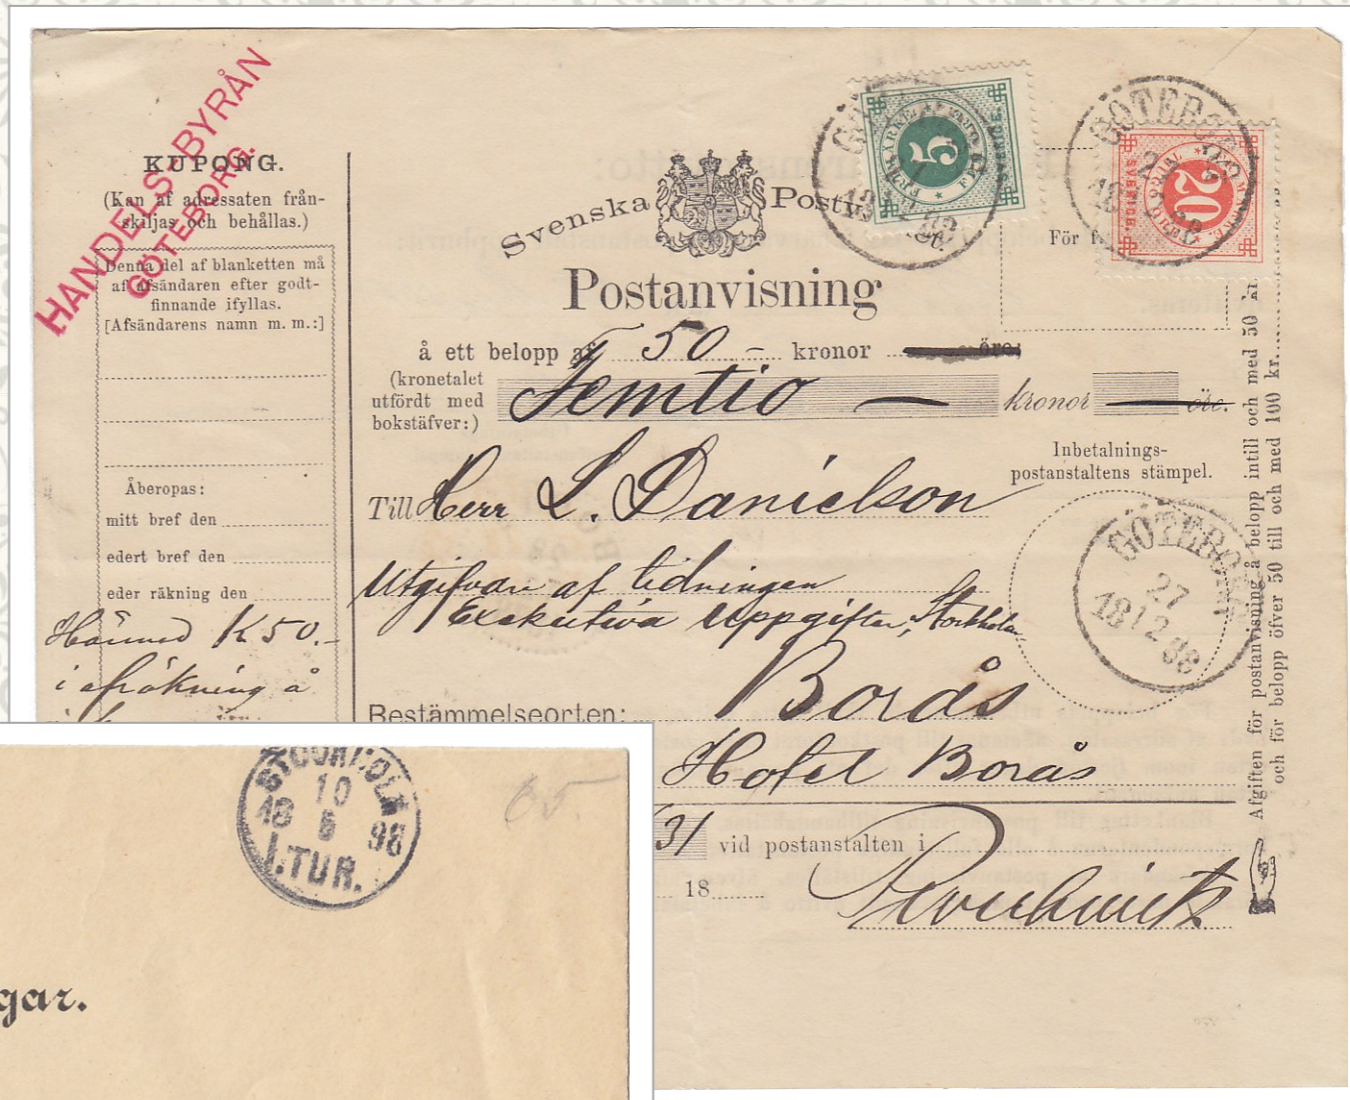 HANDELSBYRÅN
GÖTEBORG.
KUPONG.
(Kan af adressaten från-
skiljas och behållas.)
Denna del af blanketten må
af afsändaren efter godt-
finnande ifyllas.
[Afsändarens namn m. m.:]
Åberopas:
mitt bref den
edert bref den
eder räkning den
Härmed K 50.-
i afräkning å
Svenska Postv
Postanvisning
å ett belopp af 50 - kronor öre:
(kronetalet
utfördt med
bokstäfver:)
Femtio — kronor — öre.
Till Herr L. Danielson
Utgifvare af tidningen
Exekutiva Uppgifter, Stockholm
Borås
Bestämmelseorten:
Hotel Borås
31 vid postanstalten i
18
För
Inbetalnings-
postanstaltens stämpel.
GÖTEBORG
27
18 12 88
5
SVERIGE.
20
GÖTEBORG
27
Afgiften för postanvisning å belopp intill och med 50 kr.
och för belopp öfver 50 till och med 100 kr.
STOCKHOLM
10
18 6 98
1.TUR.
65.
gar.